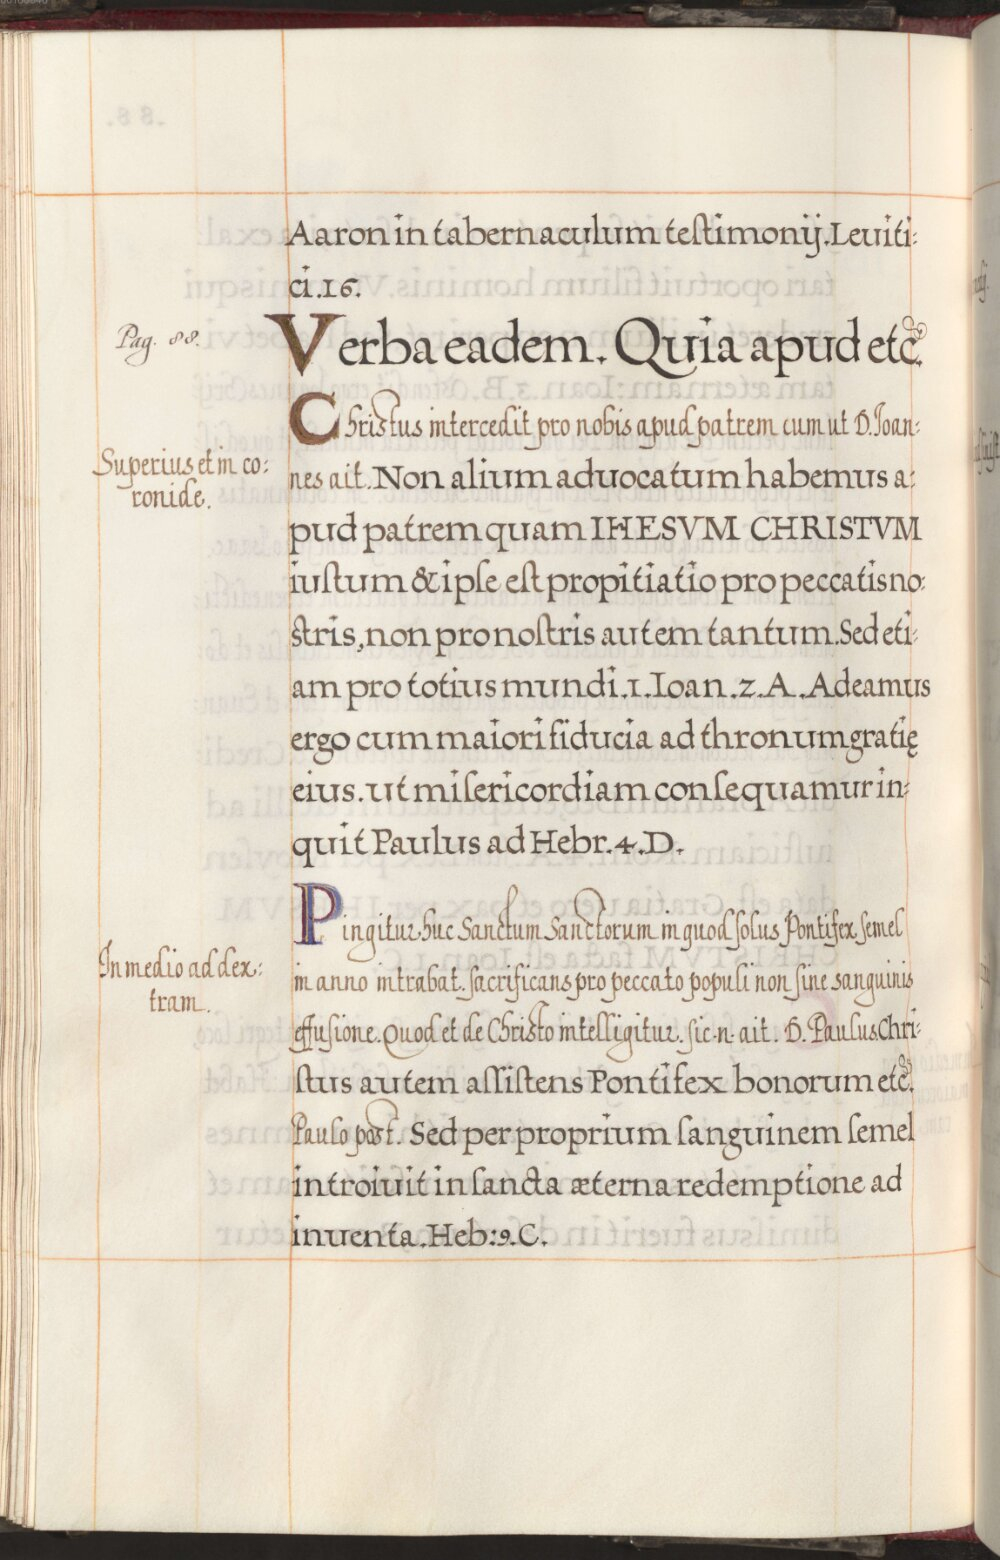 Aaron in tabernaculum testimonij. Leuiti:
ci. 16.
Pag. 88.
Verba eadem. Quia apud etc.
Christus intercedit pro nobis apud patrem cum ut D. Ioan:
Superius et in co:
ronide.
nes ait. Non alium aduocatum habemus a:
pud patrem quam IHESVM CHRISTVM
iustum & ipse est propitiatio pro peccatis no:
stris, non pro nostris autem tantum. Sed eti:
am pro totius mundi. 1. Ioan. 2. A. Adeamus
ergo cum maiori fiducia ad thronum gratię
eius. ut misericordiam consequamur in:
quit Paulus ad Hebr. 4. D.
Pingitur huc Sanctum Sanctorum in quod solus Pontifex semel
In medio ad dex:
tram.
in anno intrabat. sacrificans pro peccato populi non sine sanguinis
effusione. Quod et de Christo intelligitur. sic .n. ait. D. Paulus. Chri:
stus autem assistens Pontifex bonorum etc.
Paulo post. Sed per proprium sanguinem semel
introiuit in sancta æterna redemptione ad
inuenta. Heb: 9. C.